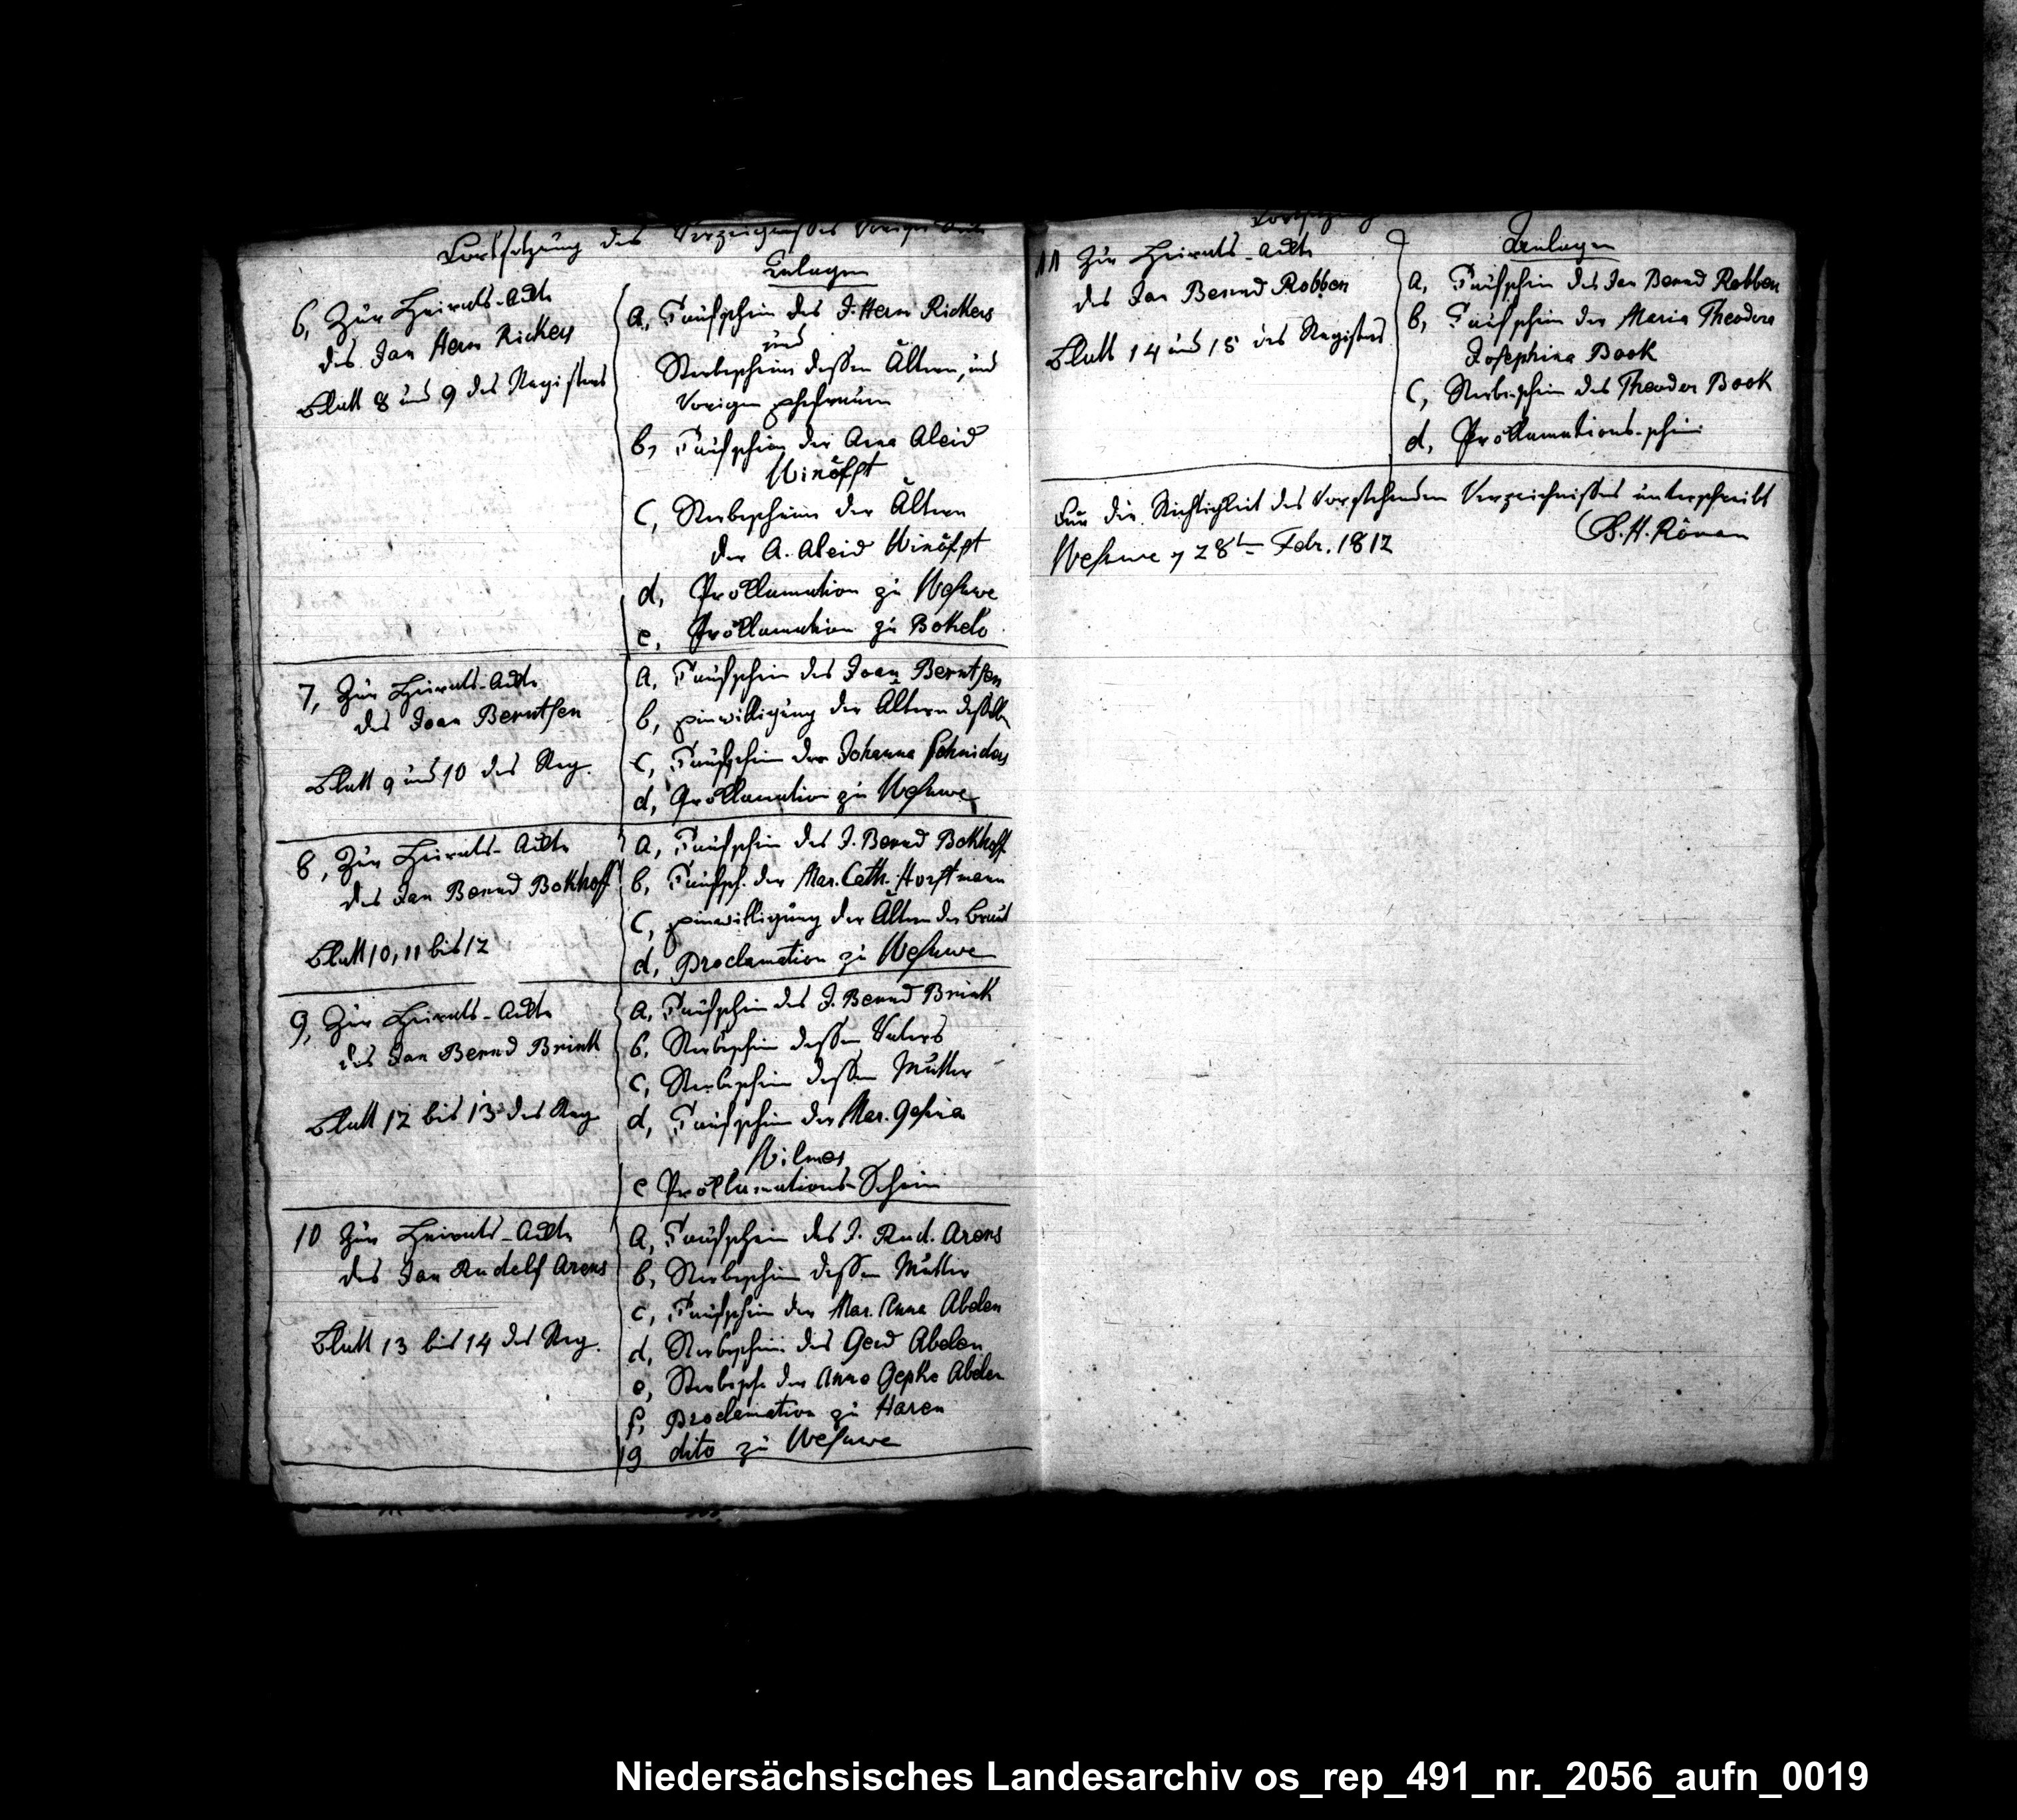 Fortsetzung des Verzeichnißes voriger Seite
Anlagen
6, Zur Heirats-Ackte
des Jan Herm Rickers
Blatt 8 und 9 des Registers
a, Taufschein des J. Herm Rickers
und
Sterbescheine dessen Ältern, und
vorigen Ehefrauen
b, Taufschein der Anna Aleid
Winöfft
c, Sterbescheine der Ältern
der A. Aleid Winöfft
d, Procklamation zu Wesuwe
e, Procklamation zu Bokelo
7, Zur Heirats-Ackte
des Joan Berntsen
Blatt 9 und 10 des Reg.
a, Taufschein des Joan Berntsen
b, Einwilligung der Ältern desselb
c, Taufschein der Johanna Schniders
d, Procklamation zu Wesuwe
8, Zur Heirats-Ackte
des Jan Bernd Bokhoff
Blatt 10, 11 bis 12
a, Taufschein des J. Bernd Bokhoff
b, Taufsch. der Mar. Cath. Horstmann
c, Einwilligung der Ältern der Braut
d, Proclamation zu Wesuwe
9, Zur Heirats-Ackte
des Jan Bernd Brink
Blatt 12 bis 13 des Reg.
a, Taufschein des J. Bernd Brink
b, Sterbeschein dessen Vaters
c, Sterbeschein dessen Mutter
d, Taufschein der Mar. Gesina
Wilmes
e Procklamations-Schein
10 Zur Heirats-Ackte
des Jan Rudolf Arens
Blatt 13 bis 14 des Reg.
a, Taufschein des J. Rud. Arens
b, Sterbeschein dessen Mutter
c, Taufschein der Mar. Anna Abelen
d, Sterbeschein des Gerd Abelen
e, Sterbesch. der Anna Gepke Abelen
f, Proclamation zu Haren
g dito zu Wesuwe
Fortsetzung
11 Zur Heirats-Ackte
des Jan Bernd Robben
Blatt 14 und 15 des Registers
Anlagen
a, Taufschein des Jan Bernd Robben
b, Taufschein der Maria Theodora
Josephina Book
c, Sterbeschein des Theodor Book
d, Procklamations-schein
Fur die Richtichkeit des vorstehenden Verzeichnißes unterschreibt
Wesuwe 28ten Febr. 1812
B. H. Röman
Niedersächsisches Landesarchiv os_rep_491_nr._2056_aufn_0019